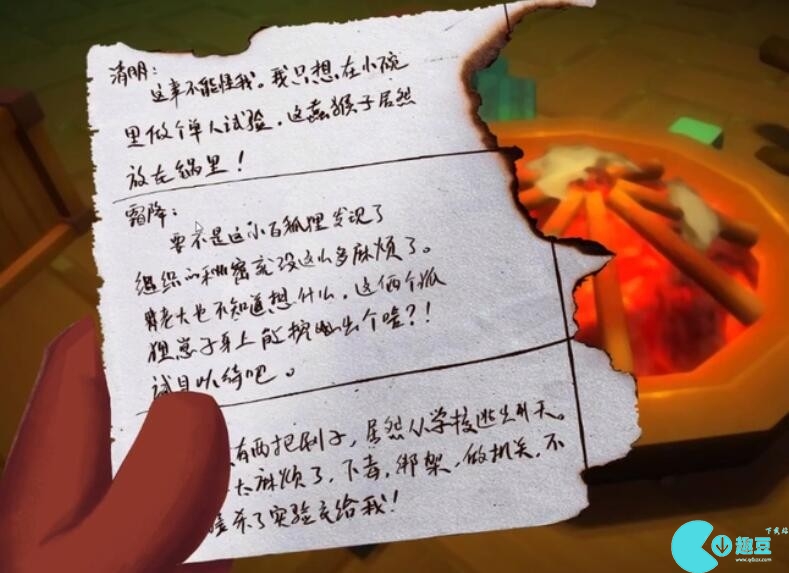 清明：
这事不能怪我。我只想在小碗
里做个单人试验，这蠢猴子居然
放在锅里！
霜降：
要不是这小百狐狸发现了
组织的秘密就没这么多麻烦了。
老大也不知道想什么，这俩个狐
狸崽子身上能挖出个啥？！
试目以待吧。
有两把刷子，居然从学校逃出升天。
太麻烦了，下毒，绑架，做机关，不
杀了实验交给我！
下载站
趣豆